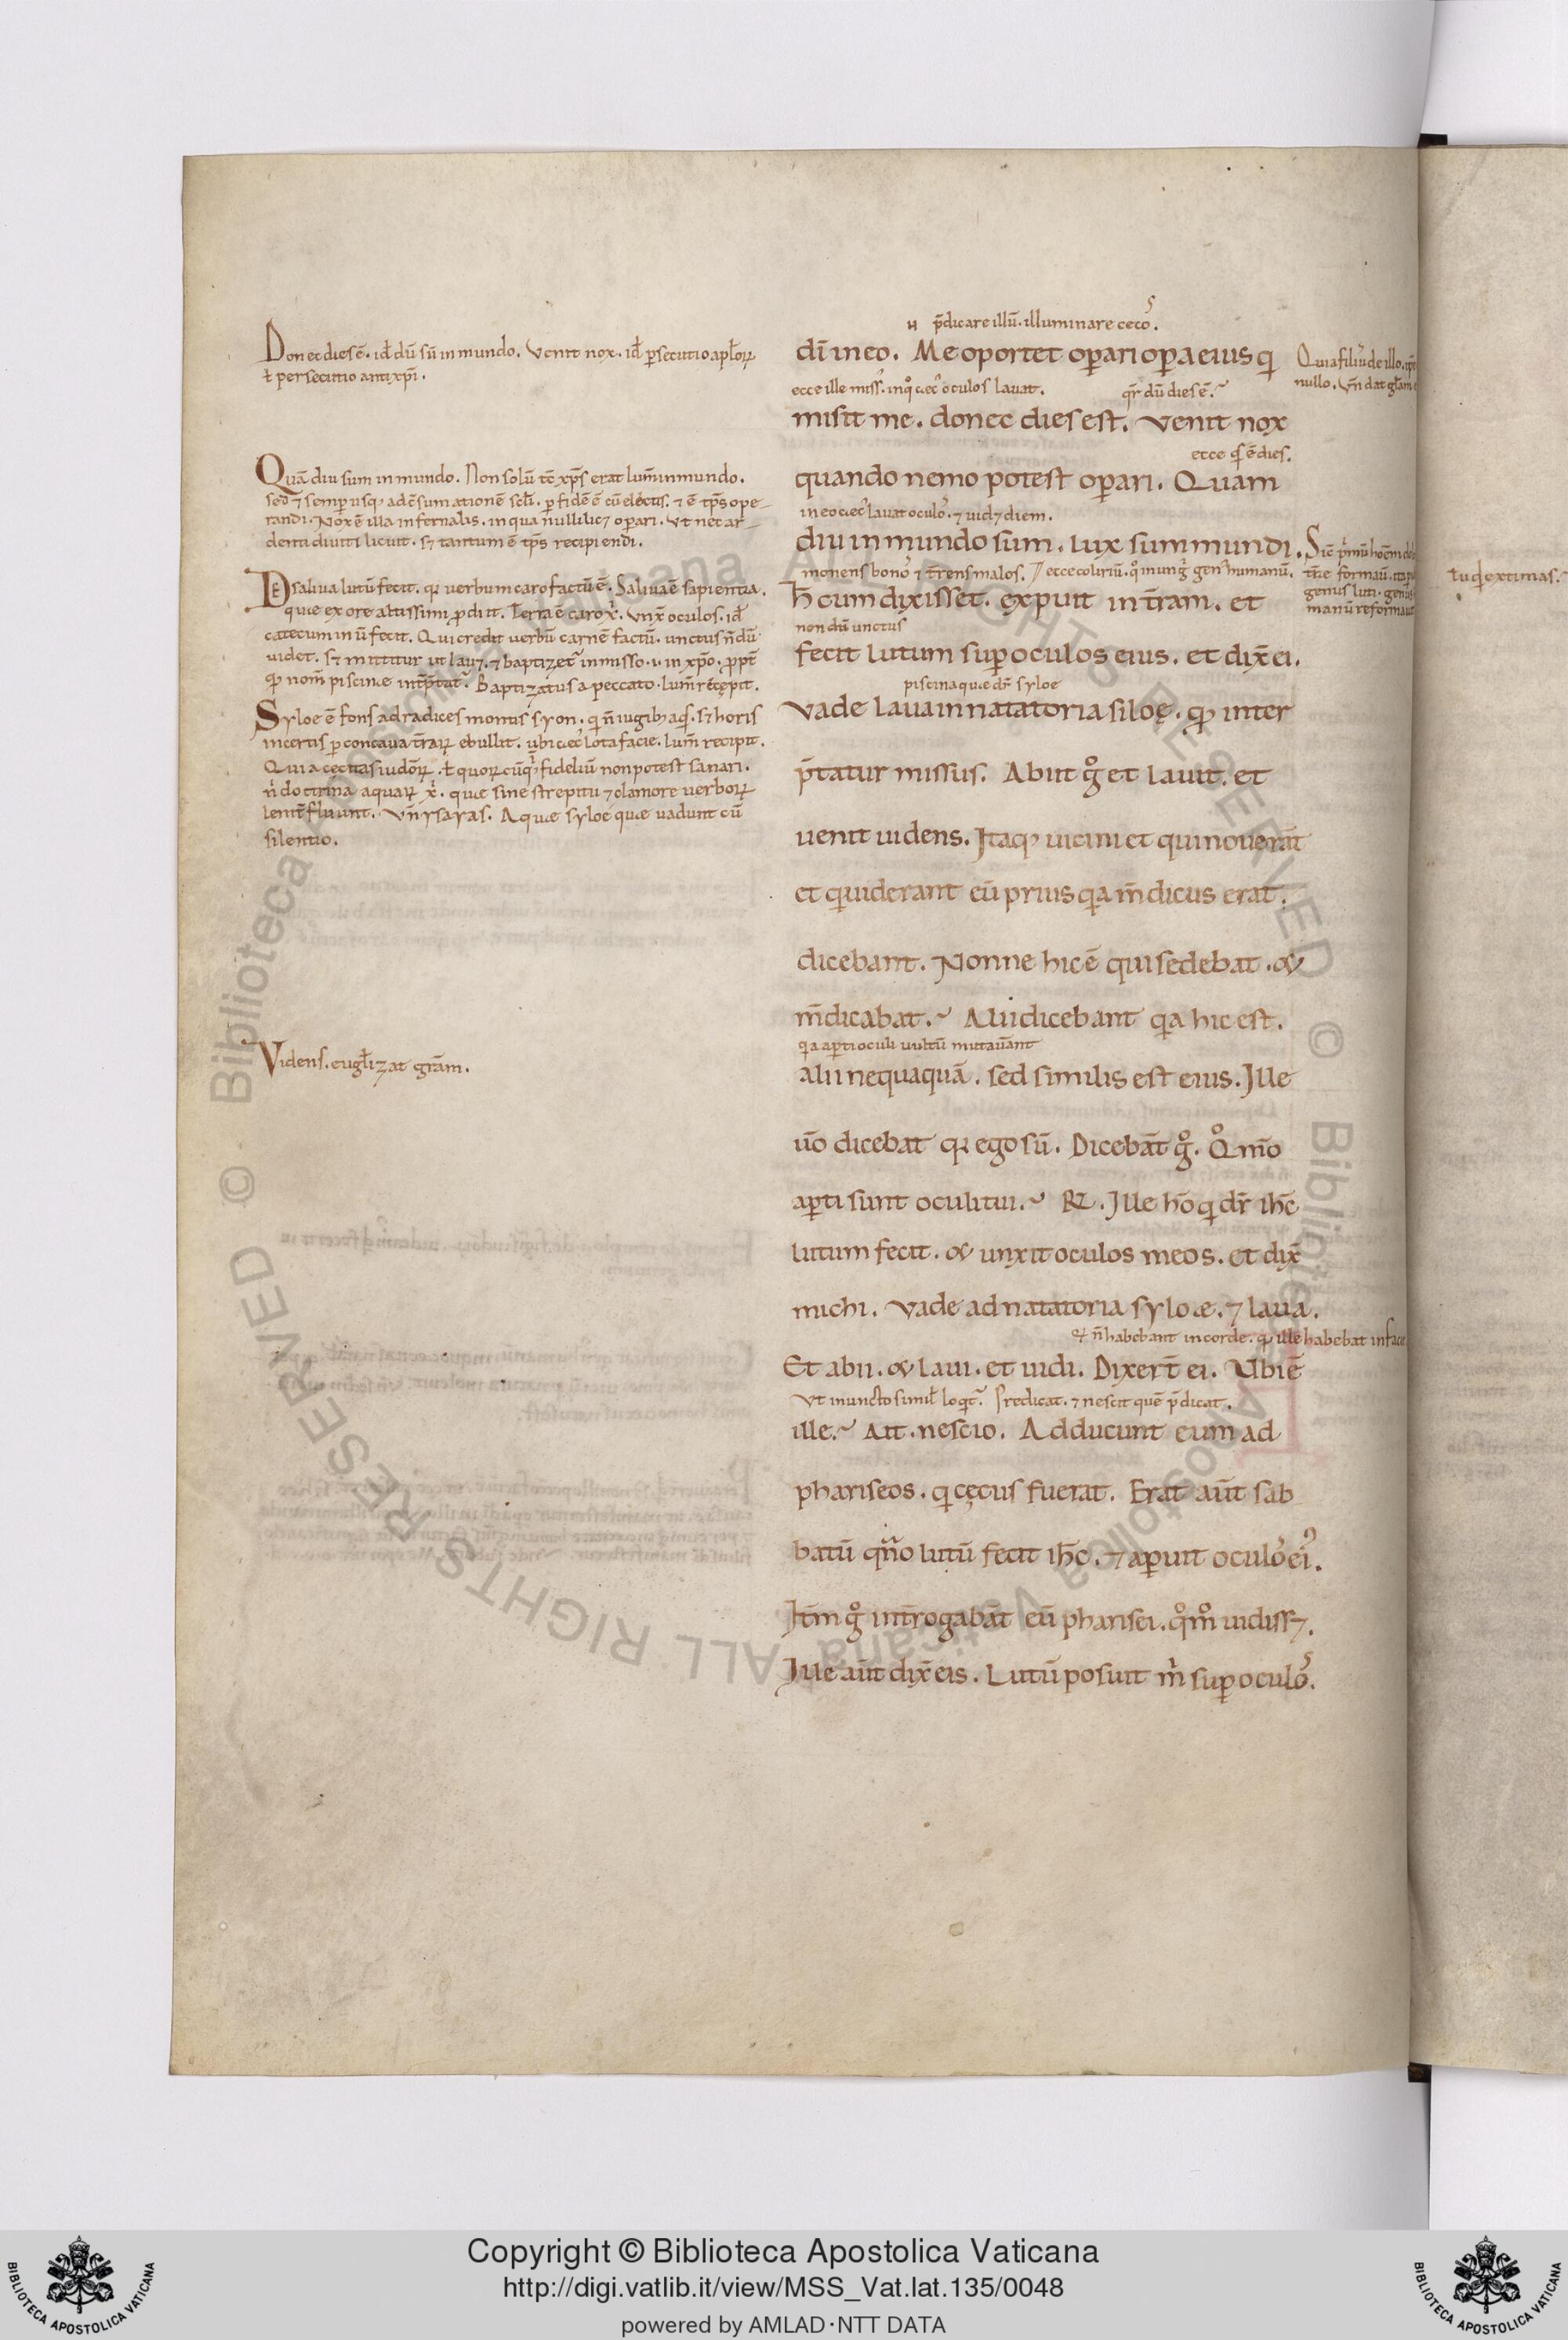 Donec dies ē. id̄ dū sū in mundo. Venit nox. id̄ ꝑsecutio apl̄oꝝ
ł persecutio antixp̄i.
Quā diu sum in mundo. Non solū tc̄ xp̄s erat lum̄ in mundo.
sed ⁊ semꝑ usq; ad
ꝑ fidē ē cū electis. ⁊ ē tp̄s ope-
randi. Nox ē illa infernalis. in qua nulli lic⁊ oꝑari. Vt nec ar-
denti diuiti licuit. s⁊ tantum ē tp̄s recipiendi.
DE saliua lutū fecit. qꝛ uerbum caro factū ē. Saliua ē sapientia.
quæ ex ore altissimi ꝓdiit. Terra ē caro xp̄i. Vnx̄ oculos. id̄
catecuminū fecit. Qui credit uerbū carnē factū. unctus n̄dū
uidet. s⁊ mittitur ut lau⁊. ⁊ baptizet᷑ in misso. i. in xp̄o. ꝓpt̄
qd̄ nom̄ piscinæ int̄p̄tat᷑. Baptizatus a peccato. lum̄ recepit.
Syloe ē fons ad radices montis syon. qͥ n̄ iugib; aqͥs. s⁊ horis
incertis ꝑ concaua t̄raꝝ ebullit. ubi cec᷒ lota facie. lum̄ recipit.
Quia cecitas iudōꝝ. ł quoꝝcūq; fideliū non potest sanari.
n̄ doctrina aquaꝝ xp̄i. quæ sine strepitu ⁊ clamore uerboꝝ
lenit̄ fluunt. Vn̄ ysayas. Aquæ syloe quæ uadunt cū
silentio.
Videns. euḡlizat grām.
p̄dicare illū. illuminare cecos.
dī in eo. Me oportet oꝑari oꝑa eius qͥ
ecce ille miss᷒. in qͦ cec᷒ oculos lauat. qr̄ dū dies ē.
misit me. donec dies est. Venit nox
ecce qͥs ē dies.
quando nemo potest oꝑari. Quam
in eo cec᷒ lauat oculos. ⁊ uid⁊ diem.
diu in mundo sum. lux sum mundi.
monens bonos ⁊ t̄rens malos. ecce coliriū. qͦ inungit᷑ gen᷒ humanū.
h̄ cum dixisset. expuit in t̄ram. et
nondū unctus
fecit lutum suꝑ oculos eius. et dix̄ ei.
piscina quæ dr̄ syloe
Vade laua in natatoria siloę. qd̄ inter
p̄tatur missus. Abiit gͦ et lauit. et
uenit uidens. Itaq; uicini et qui nouerāt
et qͥ uiderant eū prius qͥa m̄dicus erat.
dicebant. Nonne hic ē qui sedebat. &
m̄dicabat. Alii dicebant qͥa hic est.
qͥa aꝑti oculi uultū mutauant
alii nequaquā. sed similis est eius. Ille
uō dicebat qꝛ ego sū. Dicebāt gͦ. Qͦmō
aꝑti sunt oculi tui. R⁊. Ille hō qͥ dr̄ ih̄c
lutum fecit. & unxit oculos meos. et dix̄
michi. Vade ad natatoria syloæ. ⁊ laua.
n̄ habebant in corde. qd̄ ille habebat in facie
Et abii. & laui. et uidi. Dixer̄t ei. Vbi ē
Vt inuncto simil̄ loqͥt᷑. Predicat. ⁊ nescit quē p̄dicat.
ille. Ait. nescio. Adducunt eum ad
phariseos. qͥ cęcus fuerat. Erat aūt sab
batū qn̄o lutū fecit ih̄c. ⁊ aꝑuit oculos ei᷒.
Itm̄ gͦ int̄rogabāt eū pharisei. qͦmͦ uidiss⁊.
Ille aūt dix̄ eis. Lutū posuit m̄ suꝑ oculos.
Quia filiu᷒ de illo.
nullo. Vn̄ dat gl̄am
Sic pͥmū hoīem de
t̄re formau̅
genus luti. genus
manū reformauit
Copyright © Biblioteca Apostolica Vaticana
http://digi.vatlib.it/view/MSS_Vat.lat.135/0048
powered by AMLAD·NTT DATA
BIBLIOTECA APOSTOLICA VATICANA
BIBLIOTECA APOSTOLICA VATICANA
© Biblioteca Apostolica Vaticana ALL RIGHTS RESERVED
© Biblioteca Apostolica Vaticana ALL RIGHTS RESERVED